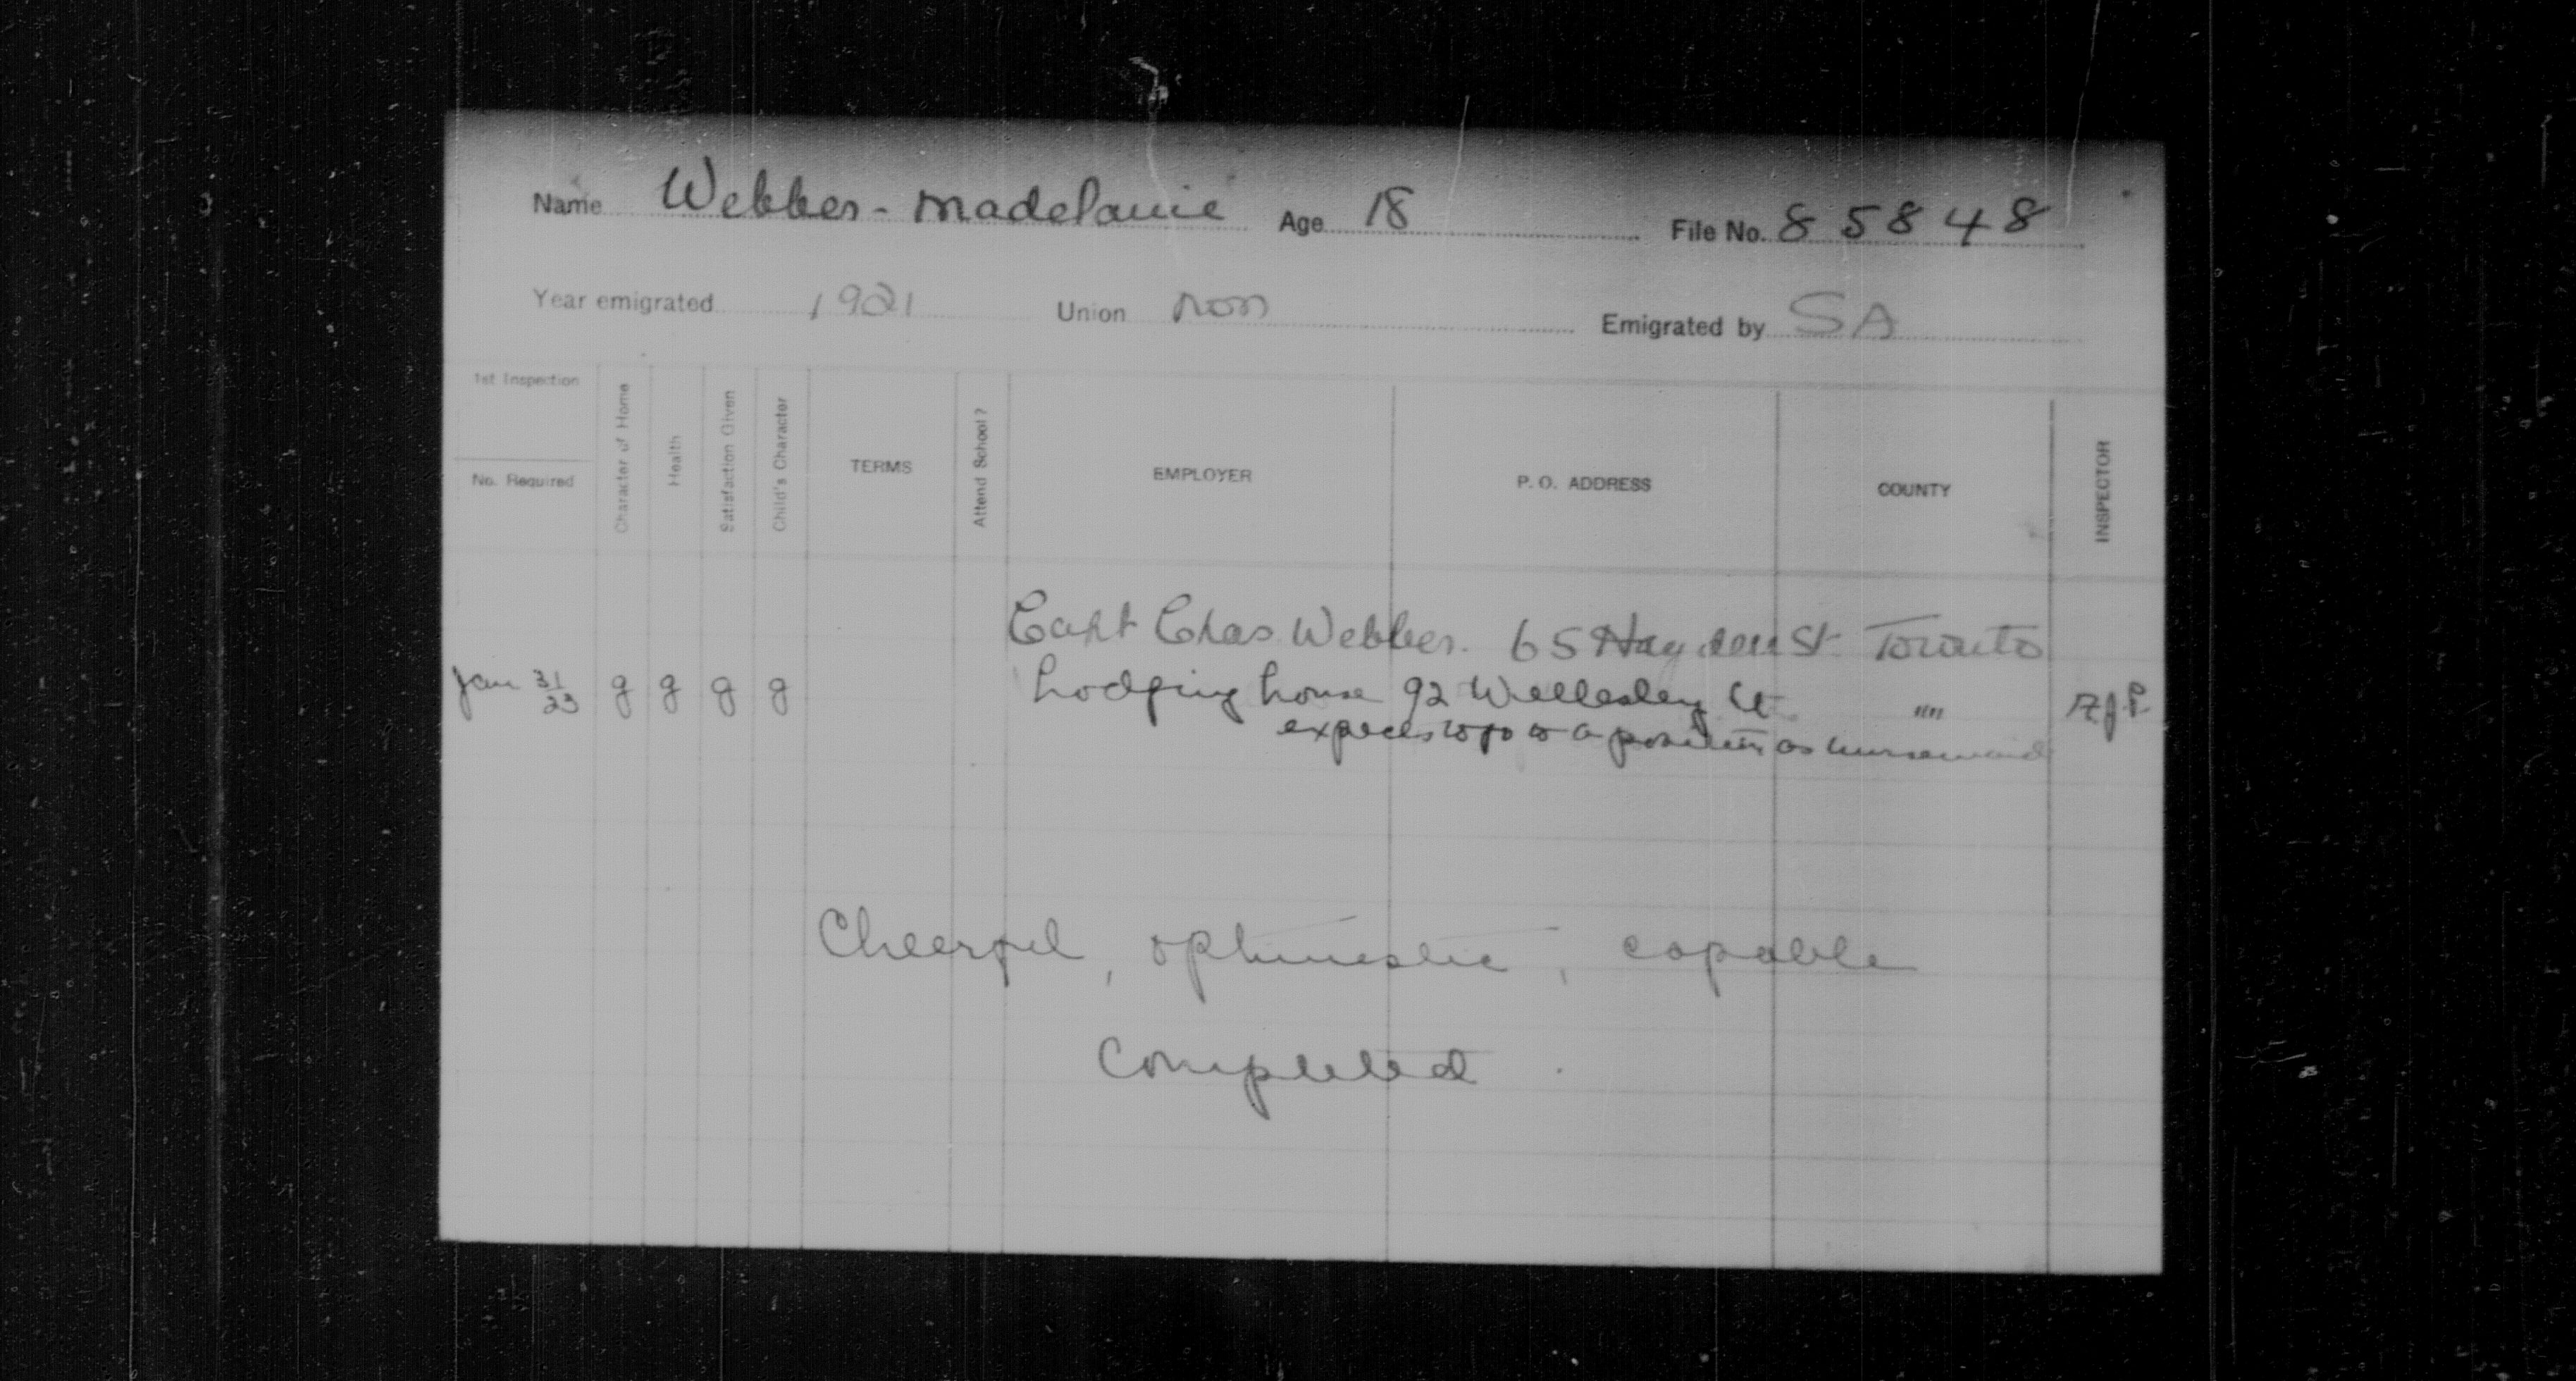 Name Webber - Madelanie Age 18 File No. 85848
Year emigrated 1921 Union non Emigrated by SA
1st Inspection
No. Required
Character of Home
Health
Satisfaction Given
Child's Character
TERMS
Attend School?
EMPLOYER
P. O. ADDRESS
COUNTY
INSPECTOR
Capt Chas Webber. 65 Hayden St. Toronto
Jan 31/23 g g g g Lodging house 92 Wellesley St. """
expects to go to a position as nursemaid
Cheerful, optimistic, capable
Completed.